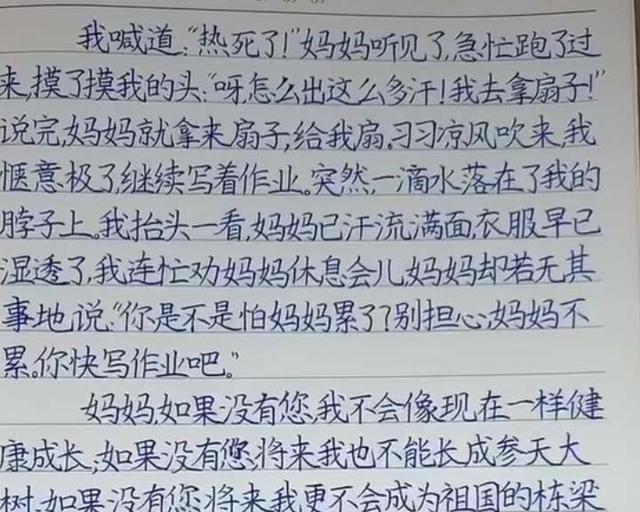 我喊道:“热死了!”妈妈听见了,急忙跑了过
来,摸了摸我的头:“呀,怎么出这么多汗!我去拿扇子!”
说完,妈妈就拿来扇子,给我扇。习习凉风吹来,我
惬意极了,继续写着作业。突然,一滴水落在了我的
脖子上。我抬头一看,妈妈已汗流满面,衣服早已
湿透了,我连忙劝妈妈休息会儿,妈妈却若无其
事地说:“你是不是怕妈妈累了?别担心,妈妈不
累。你快写作业吧。”
妈妈,如果没有您,我不会像现在一样健
康成长;如果没有您,将来我也不能长成参天大
树;如果没有您,将来我更不会成为祖国的栋梁